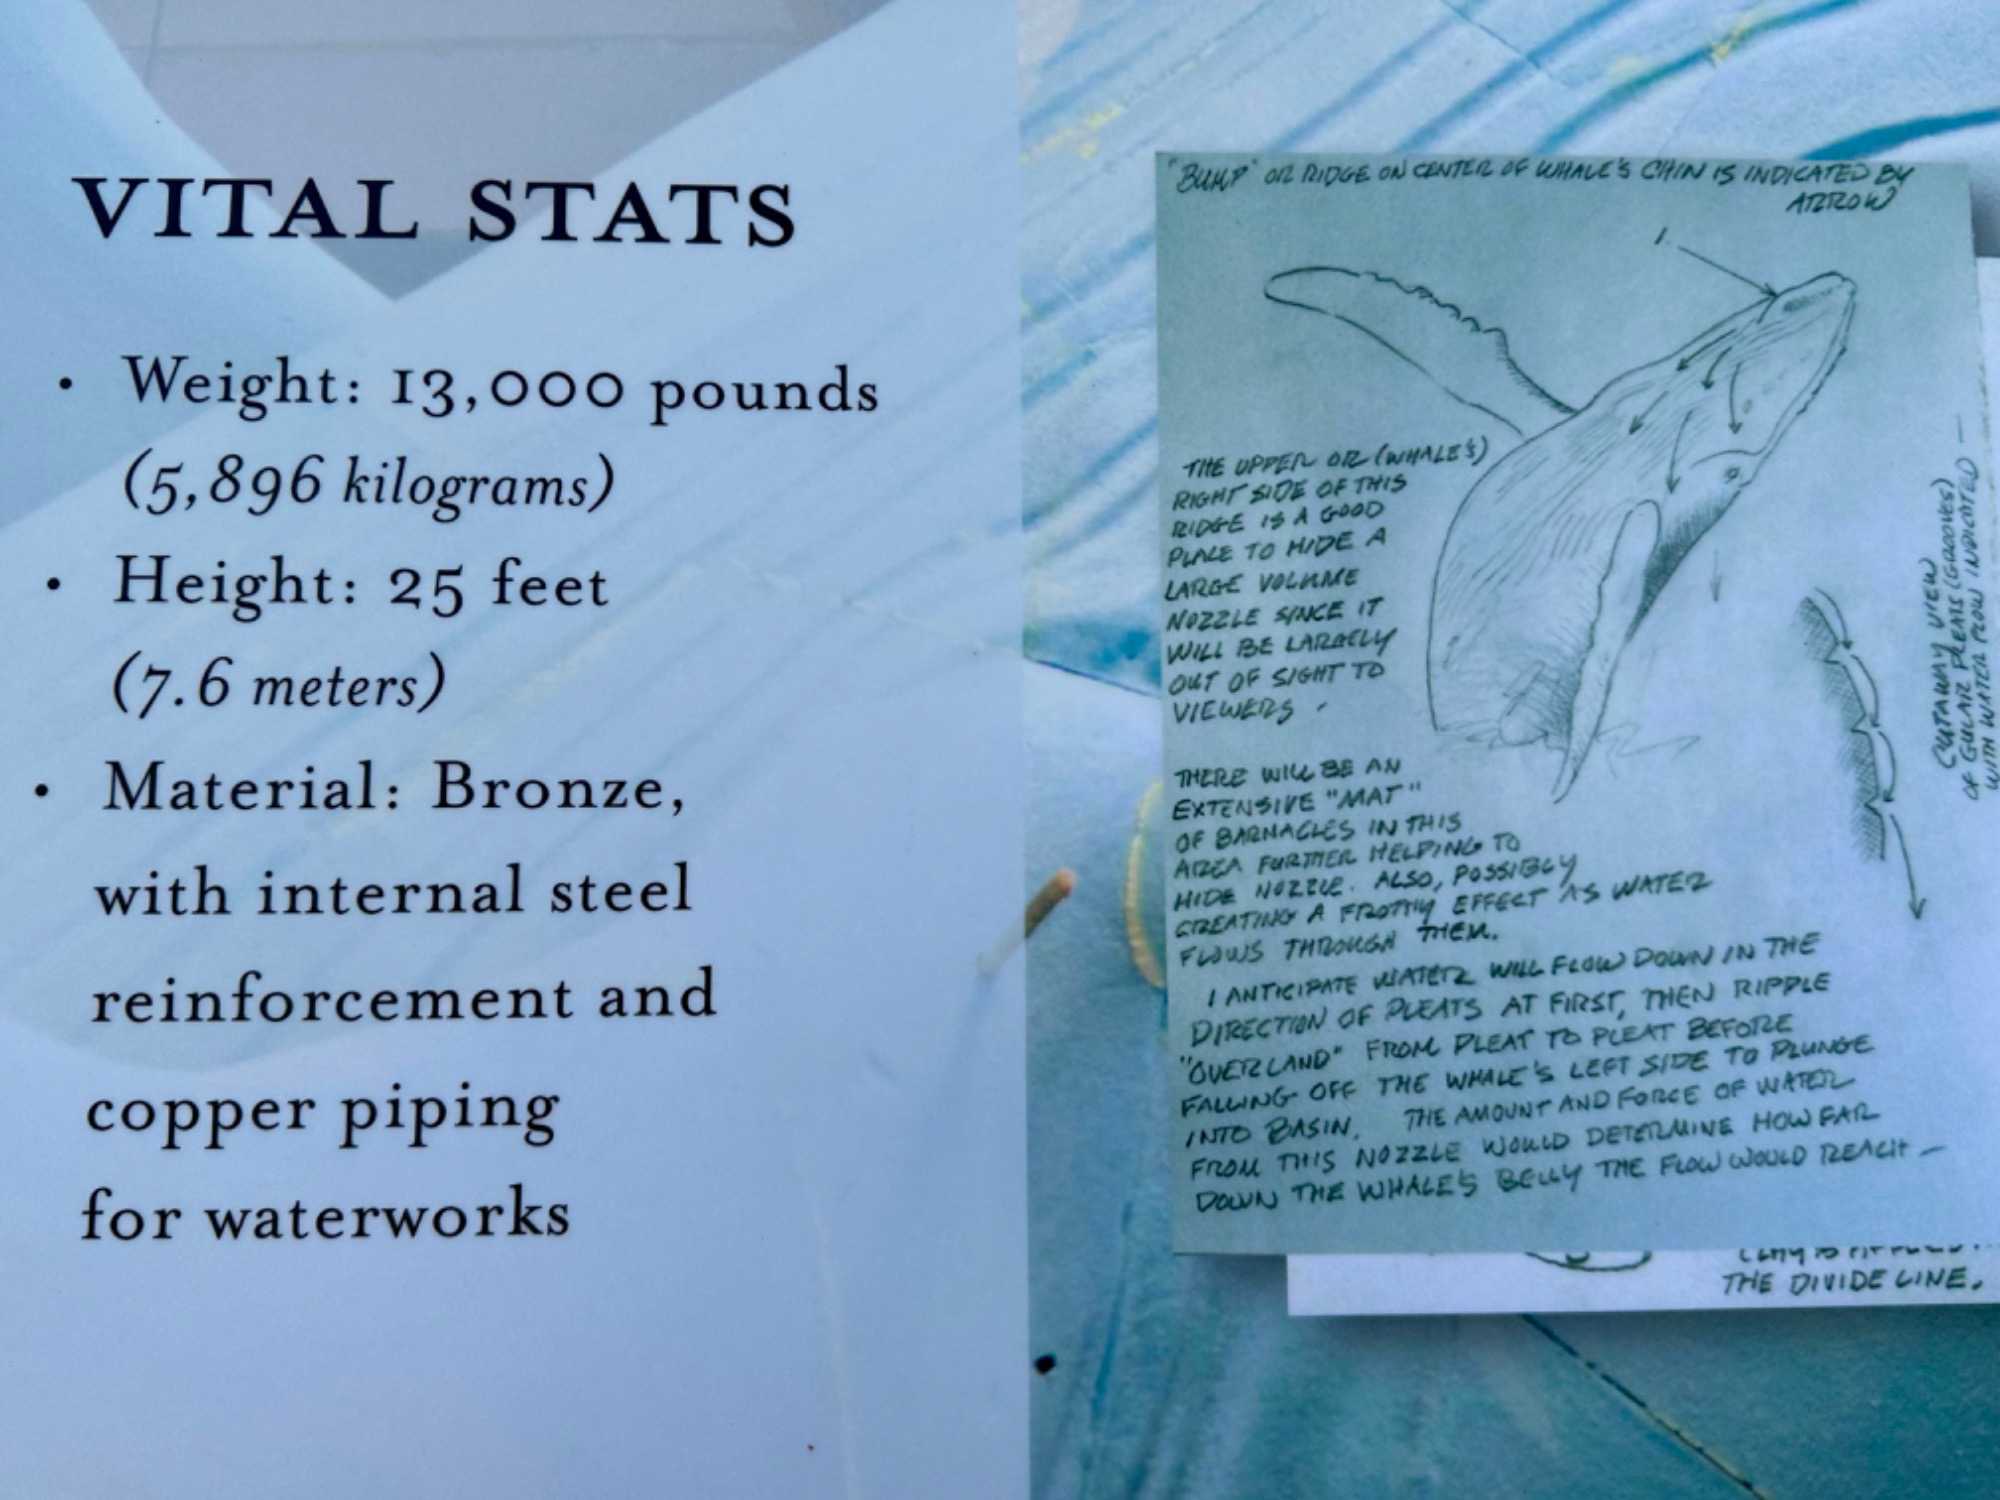 VITAL STATS
• Weight: 13,000 pounds
(5,896 kilograms)
• Height: 25 feet
(7.6 meters)
• Material: Bronze,
with internal steel
reinforcement and
copper piping
for waterworks
"BUMP" OR RIDGE ON CENTER OF WHALE'S CHIN IS INDICATED BY
ARROW
1.
THE UPPER OR (WHALE'S)
RIGHT SIDE OF THIS
RIDGE IS A GOOD
PLACE TO HIDE A
LARGE VOLUME
NOZZLE SINCE IT
WILL BE LARGELY
OUT OF SIGHT TO
VIEWERS.
THERE WILL BE AN
EXTENSIVE "MAT"
OF BARNACLES IN THIS
AREA FURTHER HELPING TO
HIDE NOZZLE. ALSO, POSSIBLY
CREATING A FROTHY EFFECT AS WATER
FLOWS THROUGH THEM.
I ANTICIPATE WATER WILL FLOW DOWN IN THE
DIRECTION OF PLEATS AT FIRST, THEN RIPPLE
"OVERLAND" FROM PLEAT TO PLEAT BEFORE
FALLING OFF THE WHALE'S LEFT SIDE TO PLUNGE
INTO BASIN. THE AMOUNT AND FORCE OF WATER
FROM THIS NOZZLE WOULD DETERMINE HOW FAR
DOWN THE WHALE'S BELLY THE FLOW WOULD REACH —
CUTAWAY VIEW
OF GULAR PLEATS (GROOVES)
WITH WATER FLOW INDICATED —
THE DIVIDE LINE.